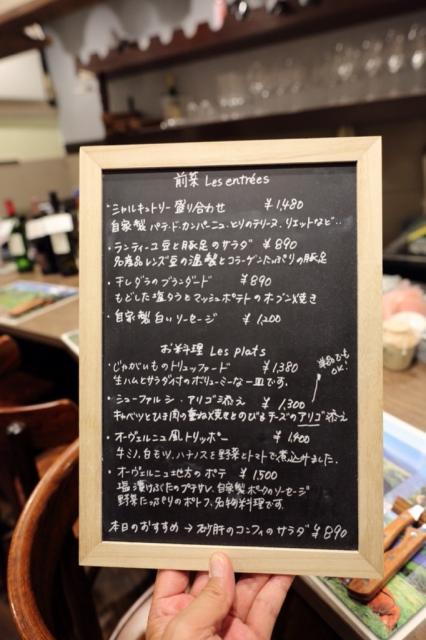 前菜 Les entrées
・シャルキュトリー盛り合わせ ¥1,480
自家製 パテ・ド・カンパーニュ、とりのテリーヌ、リエットなど‥
・ランティーユ豆と豚足のサラダ ¥890
名産品レンズ豆の温製とコラーゲンたっぷりの豚足
・干しダラのブランダード ¥890
もどした塩タラとマッシュポテトのオーブン焼き
・自家製白いソーセージ ¥1,200
お料理 Les plats
・じゃがいものトリュッファード ¥1,380
生ハムとサラダ付のボリューミーな一皿です。
単品でもOK!
・シューファルシ・アリゴ添え ¥1,300
キャベツとひき肉の重ね焼きとのびるチーズのアリゴ添え
・オーヴェルニュ風トリッポー ¥1,900
牛ミノ、白モツ、ハチノスを野菜とトマトで煮込みました。
・オーヴェルニュ地方のポテ ¥1,500
塩漬けぶたのプチサレ、自家製ポークのソーセージ
野菜たっぷりのポトフ、名物料理です。
本日のおすすめ → 砂肝のコンフィのサラダ ¥890